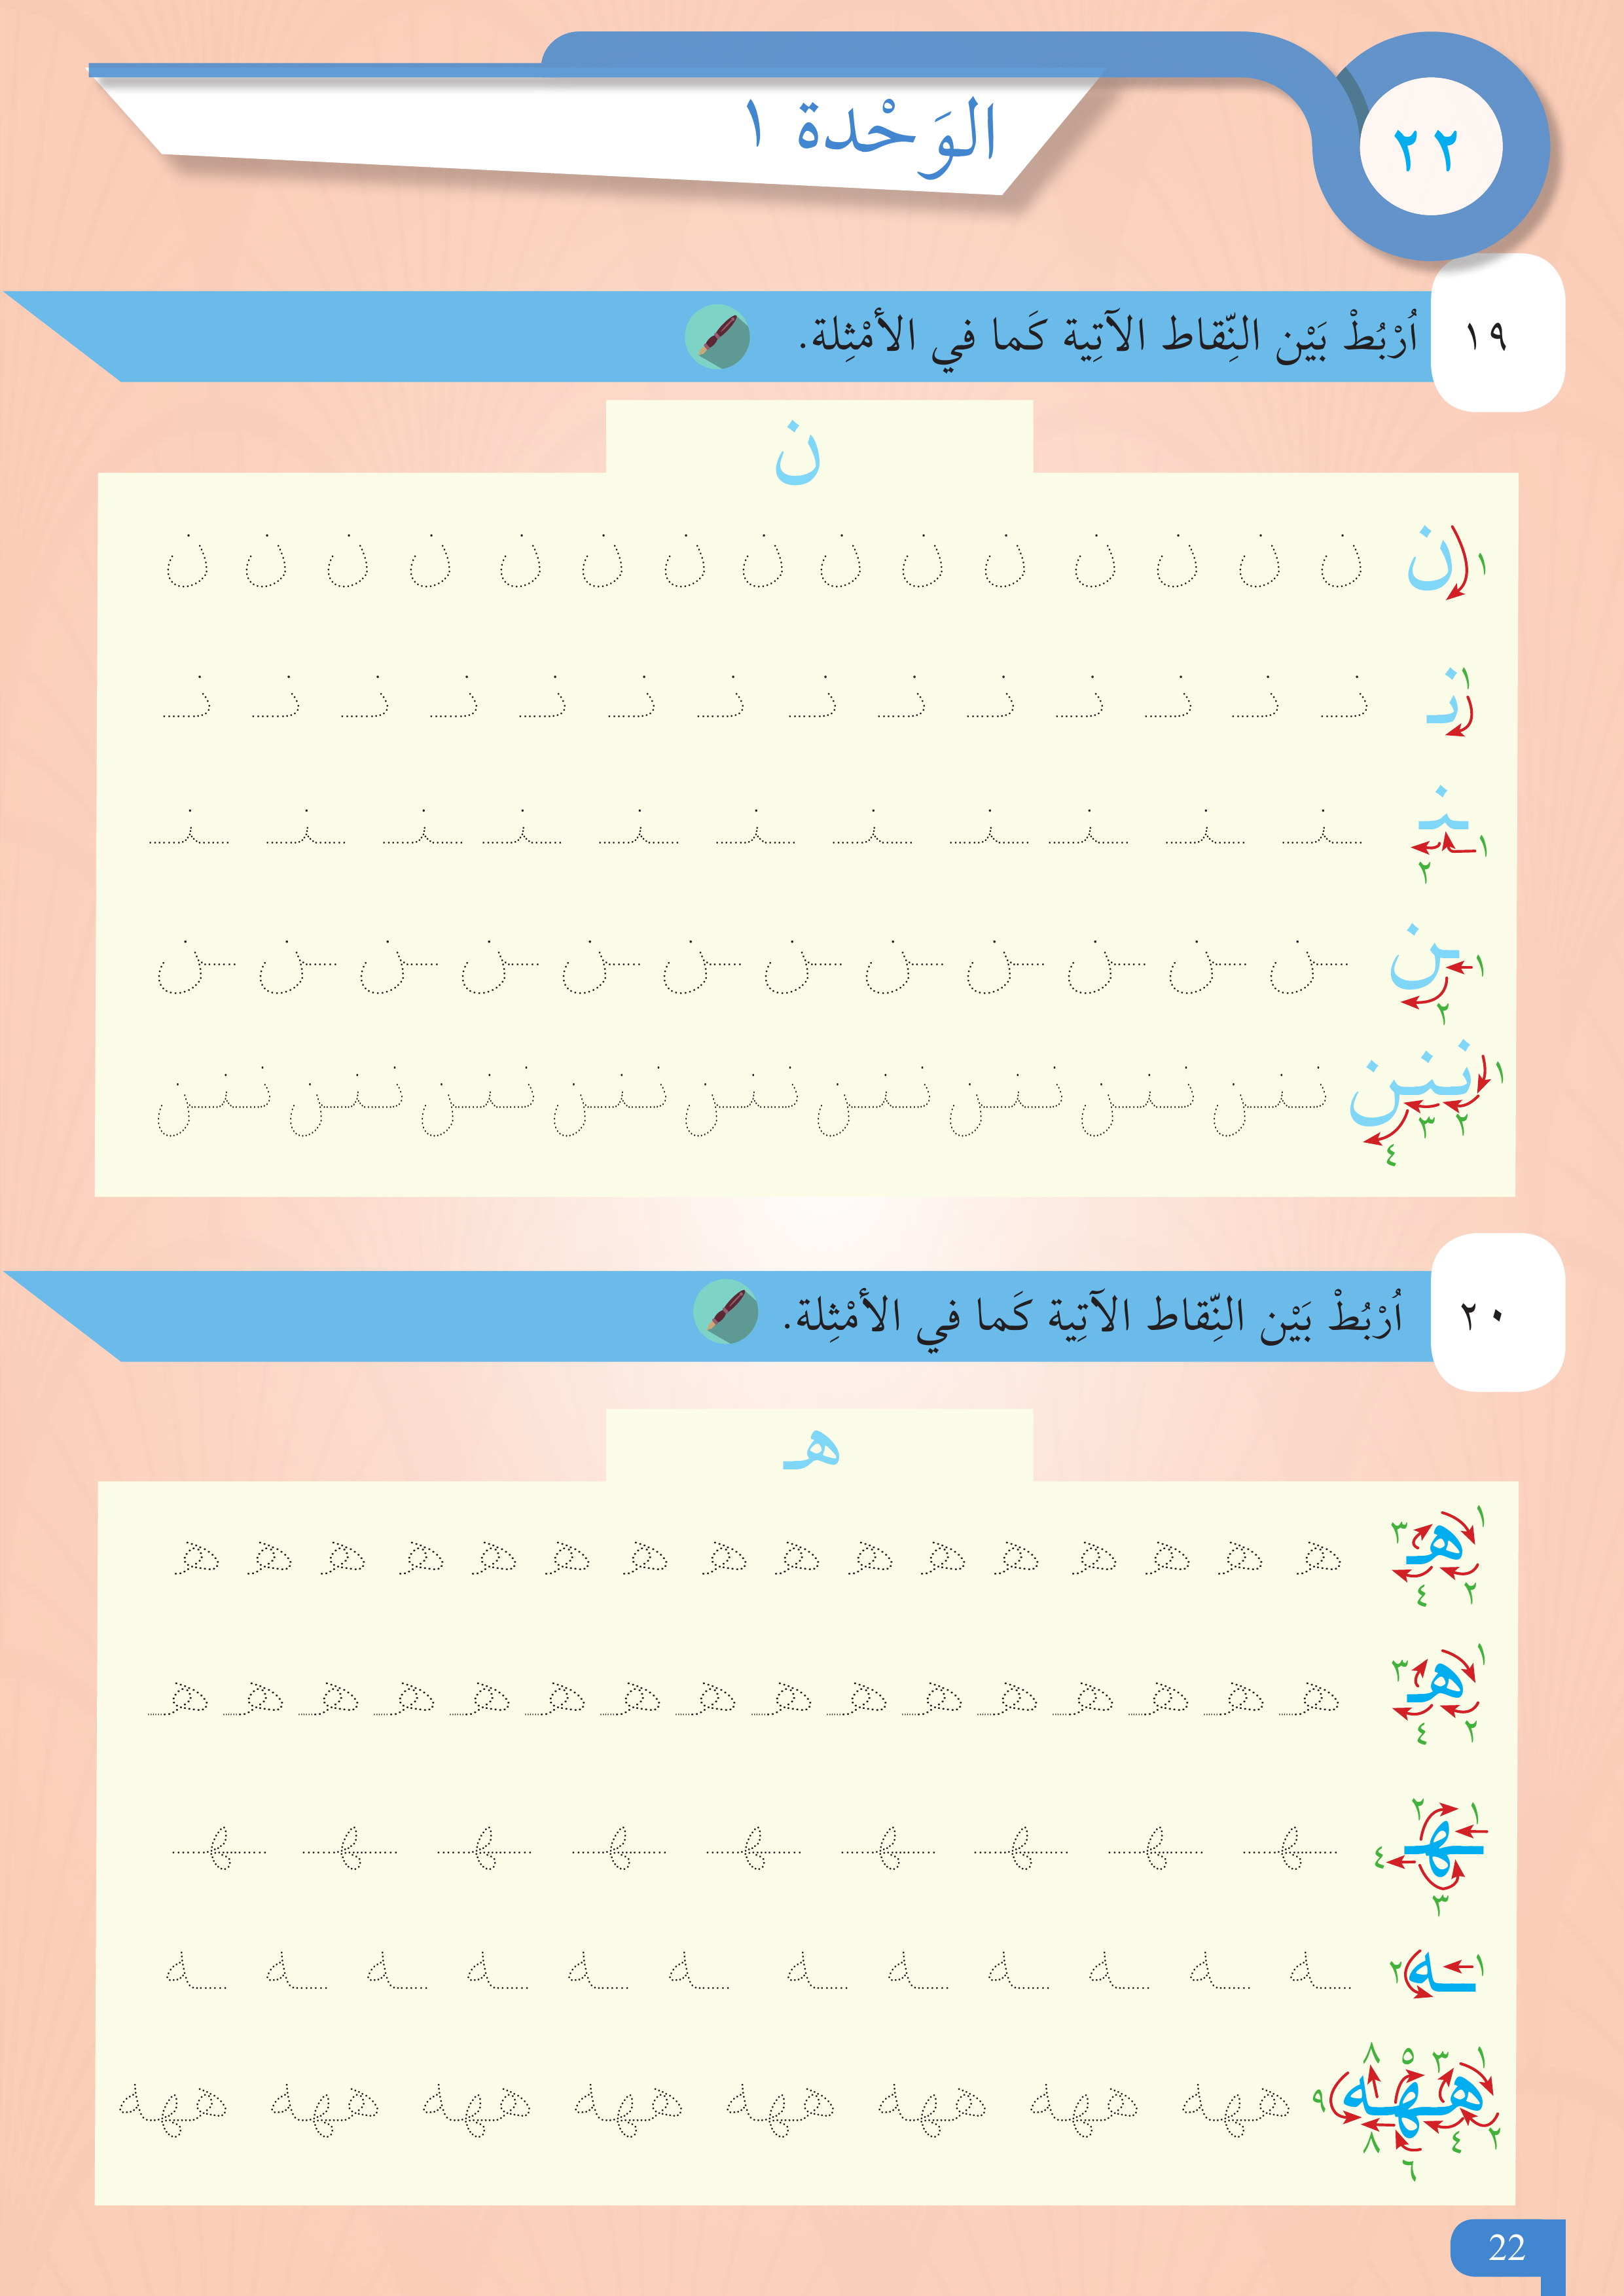 ٢٢
الوَحْدة ١
١٩ اُرْبُطْ بَيْن النِّقاط الآتِية كَما في الأمْثِلة.
ن
ن ١ ن ن ن ن ن ن ن ن ن ن ن ن ن ن ن
نـ ١ نـ نـ نـ نـ نـ نـ نـ نـ نـ نـ نـ نـ نـ نـ
ـنـ ١ ٢ ـنـ ـنـ ـنـ ـنـ ـنـ ـنـ ـنـ ـنـ ـنـ ـنـ ـنـ
ـن ١ ٢ ـن ـن ـن ـن ـن ـن ـن ـن ـن ـن ـن ـن
ننن ١ ٢ ٣ ٤ ننن ننن ننن ننن ننن ننن ننن ننن ننن
٢٠ اُرْبُطْ بَيْن النِّقاط الآتِية كَما في الأمْثِلة.
هـ
هـ ١ ٢ ٣ ٤ هـ هـ هـ هـ هـ هـ هـ هـ هـ هـ هـ هـ هـ هـ هـ هـ
هـ ١ ٢ ٣ ٤ هـ هـ هـ هـ هـ هـ هـ هـ هـ هـ هـ هـ هـ هـ هـ هـ
ـهـ ١ ٢ ٣ ٤ ـهـ ـهـ ـهـ ـهـ ـهـ ـهـ ـهـ ـهـ ـهـ
ـه ١ ٢ ـه ـه ـه ـه ـه ـه ـه ـه ـه ـه ـه ـه
ههه ١ ٢ ٣ ٤ ٥ ٦ ٨ ٨ ٩ ههه ههه ههه ههه ههه ههه ههه ههه
22